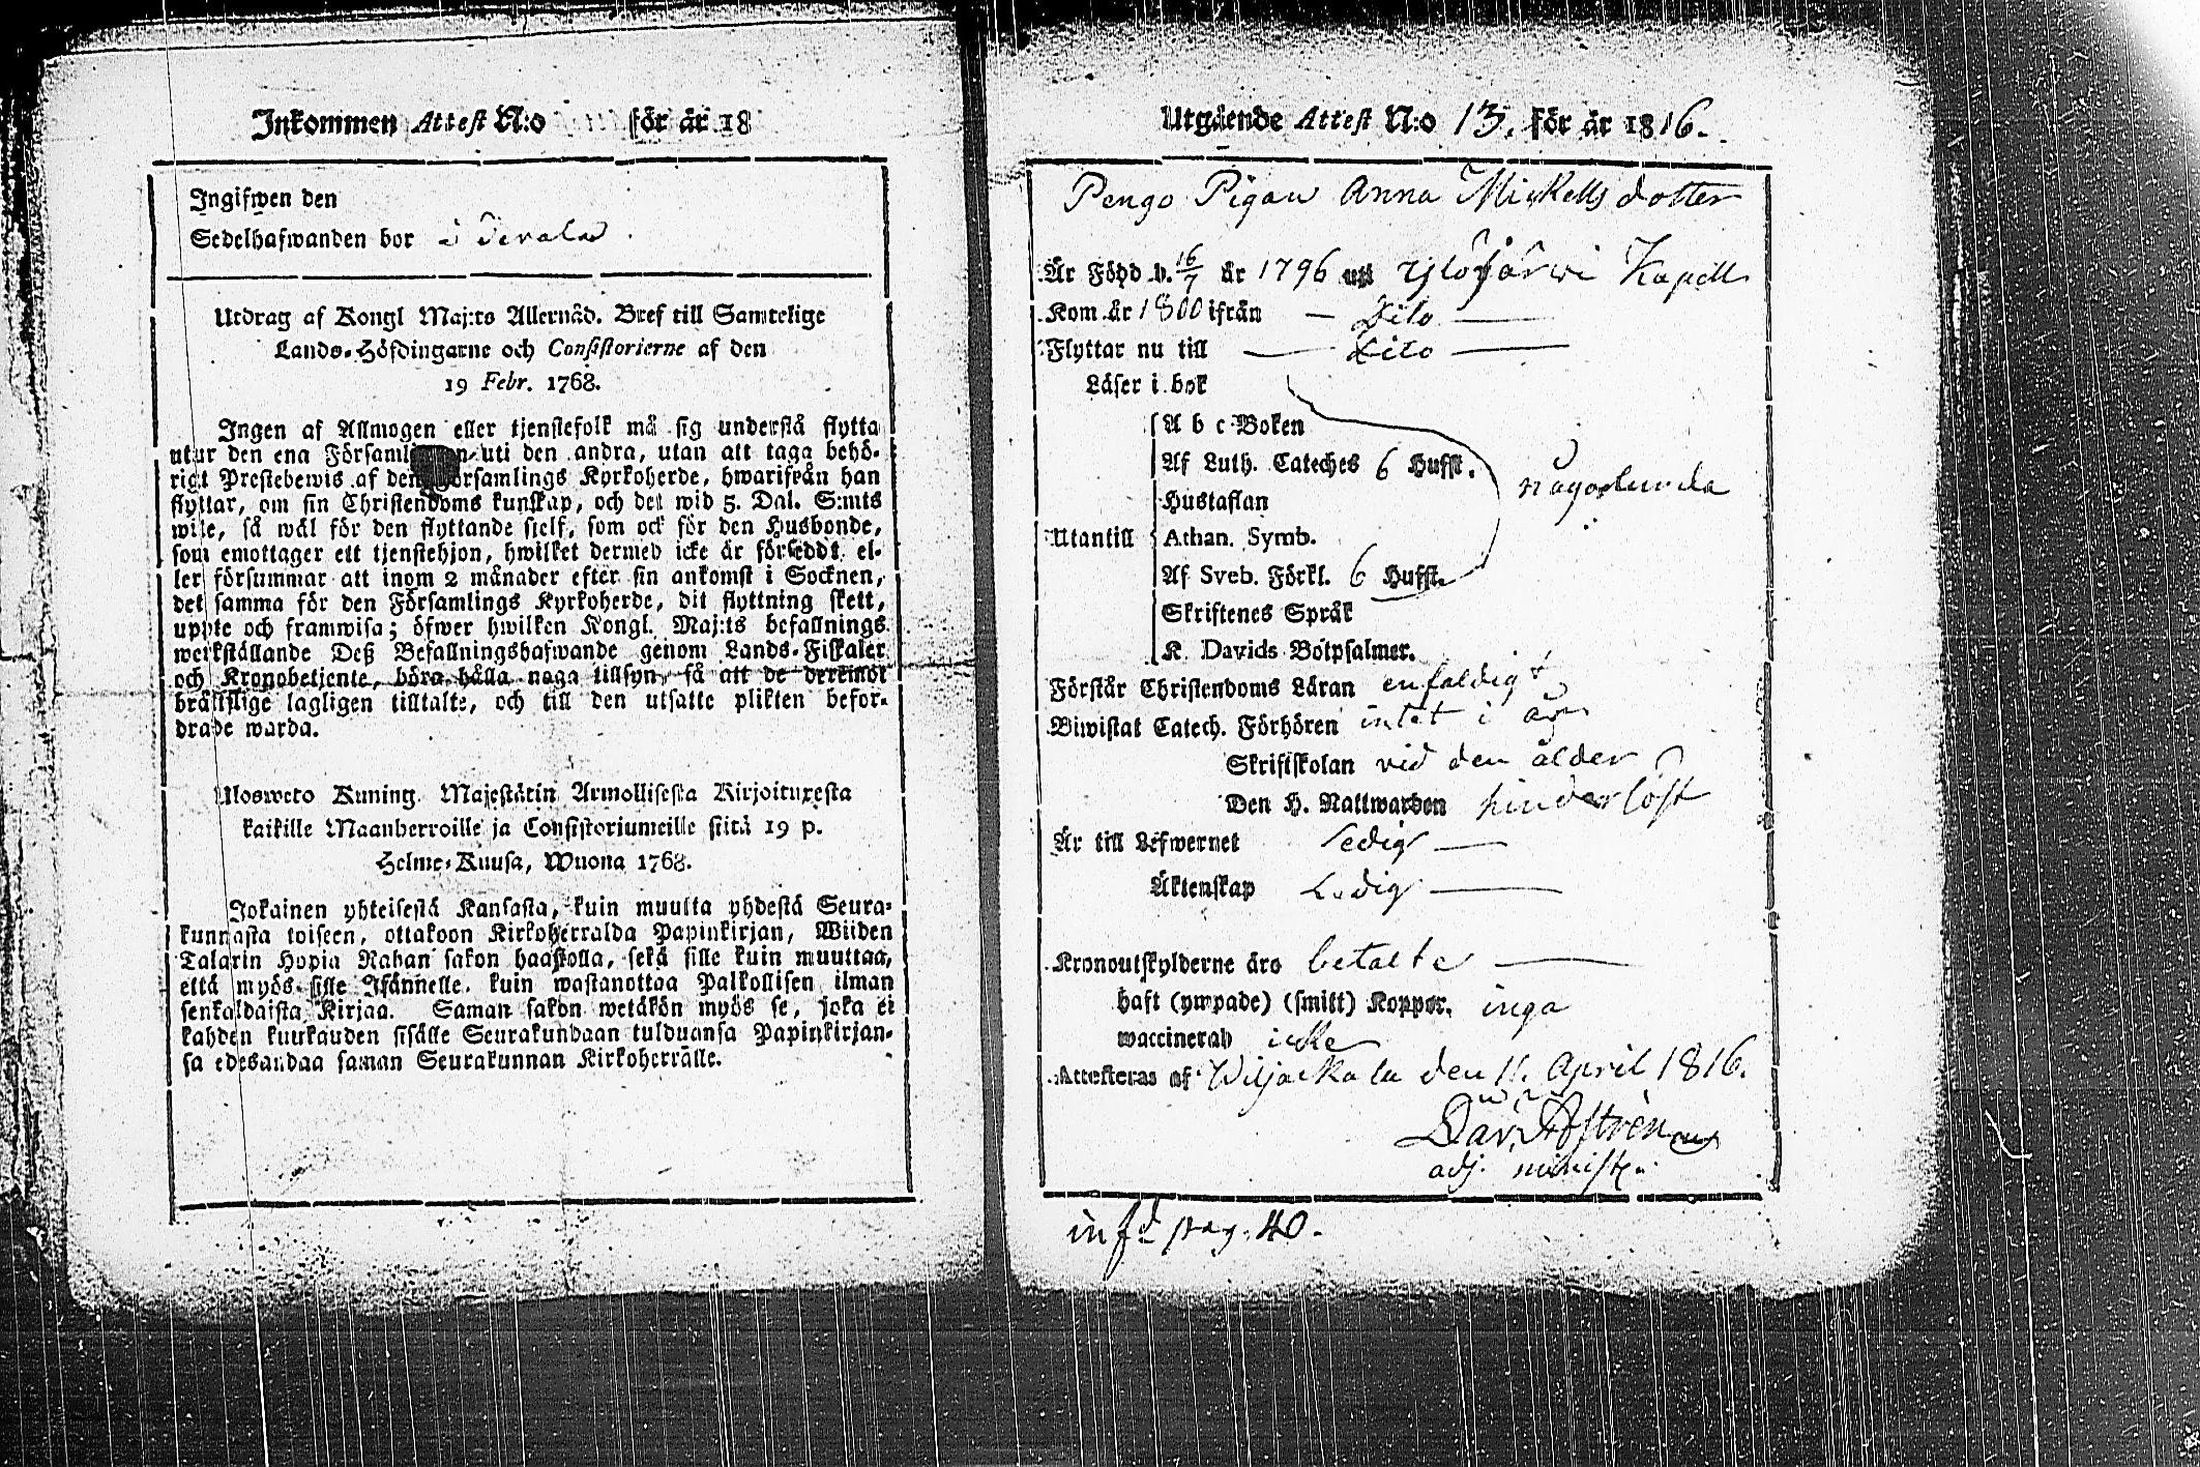 Inkommen Attest N:o för år 18
Ingifwen den
Sedelhafwanden bor i
Utdrag af Kongl Maj:ts Allernåd. Bref till Samtelige
Lands-Höfdingarne och Consistorierne af den
19 Febr. 1768.
Ingen af Allmogen eller tjenstefolk må sig understå flytta
utur den ena uti den andra, utan att taga behö-
rigt Prestebewis af den Församlings Kyrkoherde, hwarifrån han
flyttar, om sin Christendoms kunskap, och det wid 5. Dal. S:mts
wite, så wäl för den flyttande sielf, som ock för den Husbonde,
som emottager ett tjenstehjon, hwilket dermed icke är försedt, el-
ler försummar att inom 2 månader efter sin ankomst i Socknen,
det samma för den Församlings Kyrkoherde, dit flyttning skett,
uppte och framwisa; öfwer hwilken Kongl. Maj:ts befallnings
werkställande Deß Befallningshafwande genom Lands-Fiskaler
och Kronobetjente, böra hålla noga tillsyn, så att de deremot
bråttslige lagligen tilltalte, och till den utsatte plikten befor-
drade warda.
Ulosweto Kuning. Majestätin Armollisesta Kirjoituxesta
kaikille Maanherroille ja Consistoriumeille siitä 19 p.
Helme-Kuusa, Wuona 1768.
Jokainen yhteisestä Kansasta, kuin muutta yhdestä Seura-
kunnasta toiseen, ottakoon Kirkoherralda Papinkirjan, Wiiden
Talarin Hopia Rahan sakon haastolla, sekä sille kuin muuttaa,
että myös sille Isännelle, kuin wastanottaa Palkollisen ilman
senkaldaista Kirjaa. Saman sakon wetäkön myös se, joka ei
kahden kuukauden sisälle Seurakundaan tulduansa Papinkirjan-
sa edesandaa saman Seurakunnan Kirkoherralle.
Utgående Attest N:o 13. för år 1816.
Pengo Pigan Anna Mickells dotter
Är Född d. 16/7 år 1796 uti Ylöjärwi Kapell
Kom år 1800 ifrån — Dito —
Flyttar nu till — Dito —
Läser i bok
A b c Boken
Af Luth. Cateches 6 Hufst.
någorlunda
Hustaflan
Utantill Athan. Symb.
Af Sveb. Förkl. 6 Hufst.
Skriftenes Språk
K. Davids Botpsalmer.
Förstår Christendoms Läran enfaldigt
Biwistat Catech. Förhören intet i år
Skriftskolan vid den ålder
Den H. Nattwarden hinderlöst
Är till Lefwernet ledig —
Äktenskap Ledig —
Kronoutskylderne äro betalte —
haft (ympade) (smitt) Koppor. inga
waccinerad icke
Attesteras af Wiljackala den 11. April 1816.
Dav. Astrèn
adj. minist.
inf. pag. 40.